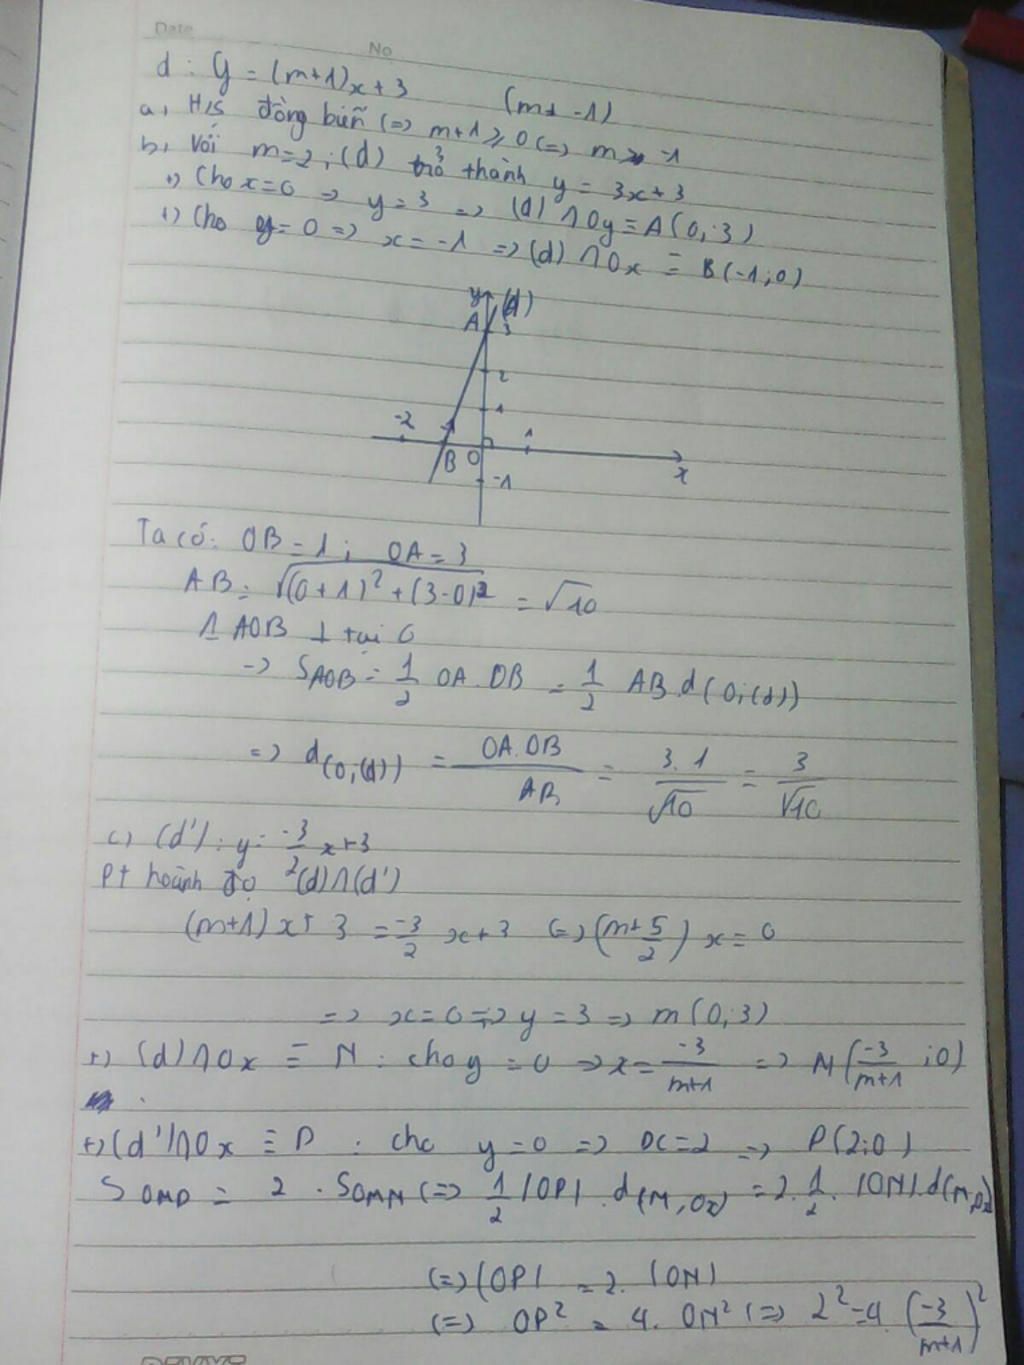 Date
No
d : y = (m+1)x + 3 (m ≠ -1)
a, H/S đồng biến (=> m+1 > 0 (=> m > -1
b, Với m=2; (d) trở thành y = 3x+3
+) Cho x=0 => y = 3 => (d) ∩ Oy ≡ A(0;3)
+) Cho y=0 => x = -1 => (d) ∩ Ox ≡ B(-1;0)
y (d)
A 3
2
1
-2 1
B O x
-1
Ta có: OB = 1 ; OA = 3
AB = √(0+1)² + (3-0)² = √10
Δ AOB ⊥ tại O
=> S AOB = 1/2 OA.OB = 1/2 AB.d(O;(d))
=> d(O;(d)) = OA.OB/AB = 3.1/√10 = 3/√10
c) (d') : y = -3/2 x+3
Pt hoành độ (d)∩(d')
(m+1)x + 3 = -3/2 x+3 (=> (m+5/2) x = 0
=> x=0 => y = 3 => M(0;3)
+) (d)∩Ox ≡ N : cho y = 0 => x = -3/m+1 => N(-3/m+1 ;0)
+) (d')∩Ox ≡ P : cho y=0 => x=2 => P(2;0)
S OMP = 2 . S OMN (=> 1/2 |OP| . d(M,Ox) = 2.1/2 . |ON|.d(M,Ox)
(=> |OP| = 2. |ON|
(=> OP² = 4. ON² (=> 2² = 4 (-3/m+1)²